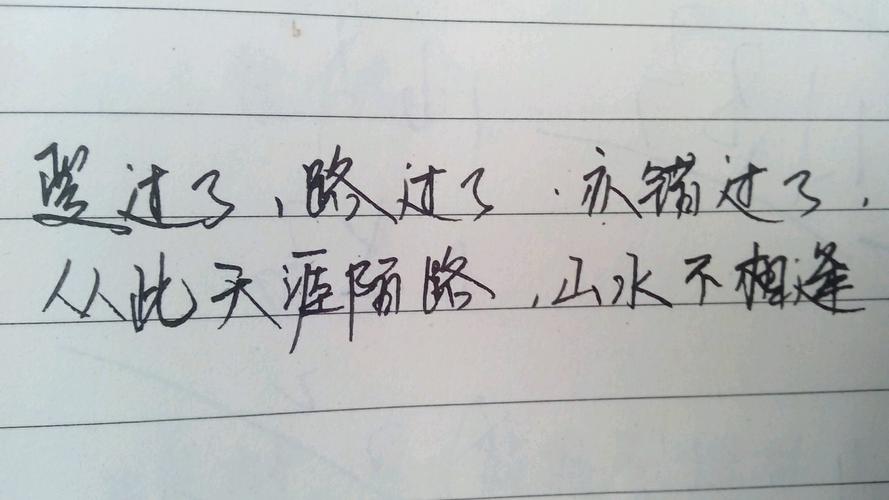 过了、路过了.亦错过了,
从此天涯陌路,山水不相逢